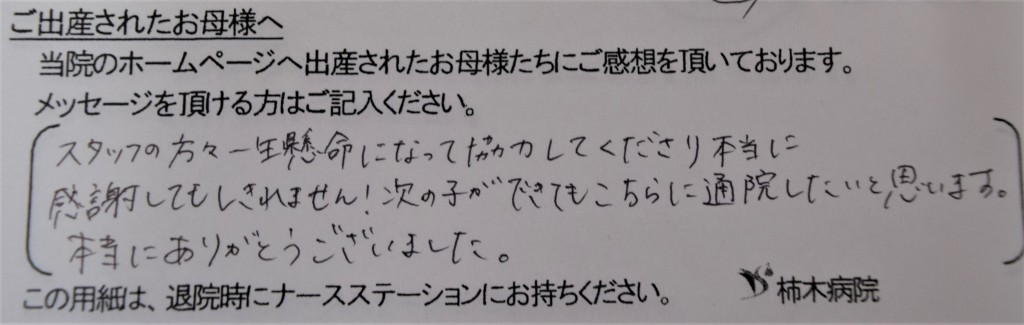 ご出産されたお母様へ
当院のホームページへ出産されたお母様たちにご感想を頂いております。
メッセージを頂ける方はご記入ください。
スタッフの方々一生懸命になって協力してくださり本当に
感謝してもしきれません!次の子ができてもこちらに通院したいと思います。
本当にありがとうございました。
この用紙は、退院時にナースステーションにお持ちください。 柿木病院